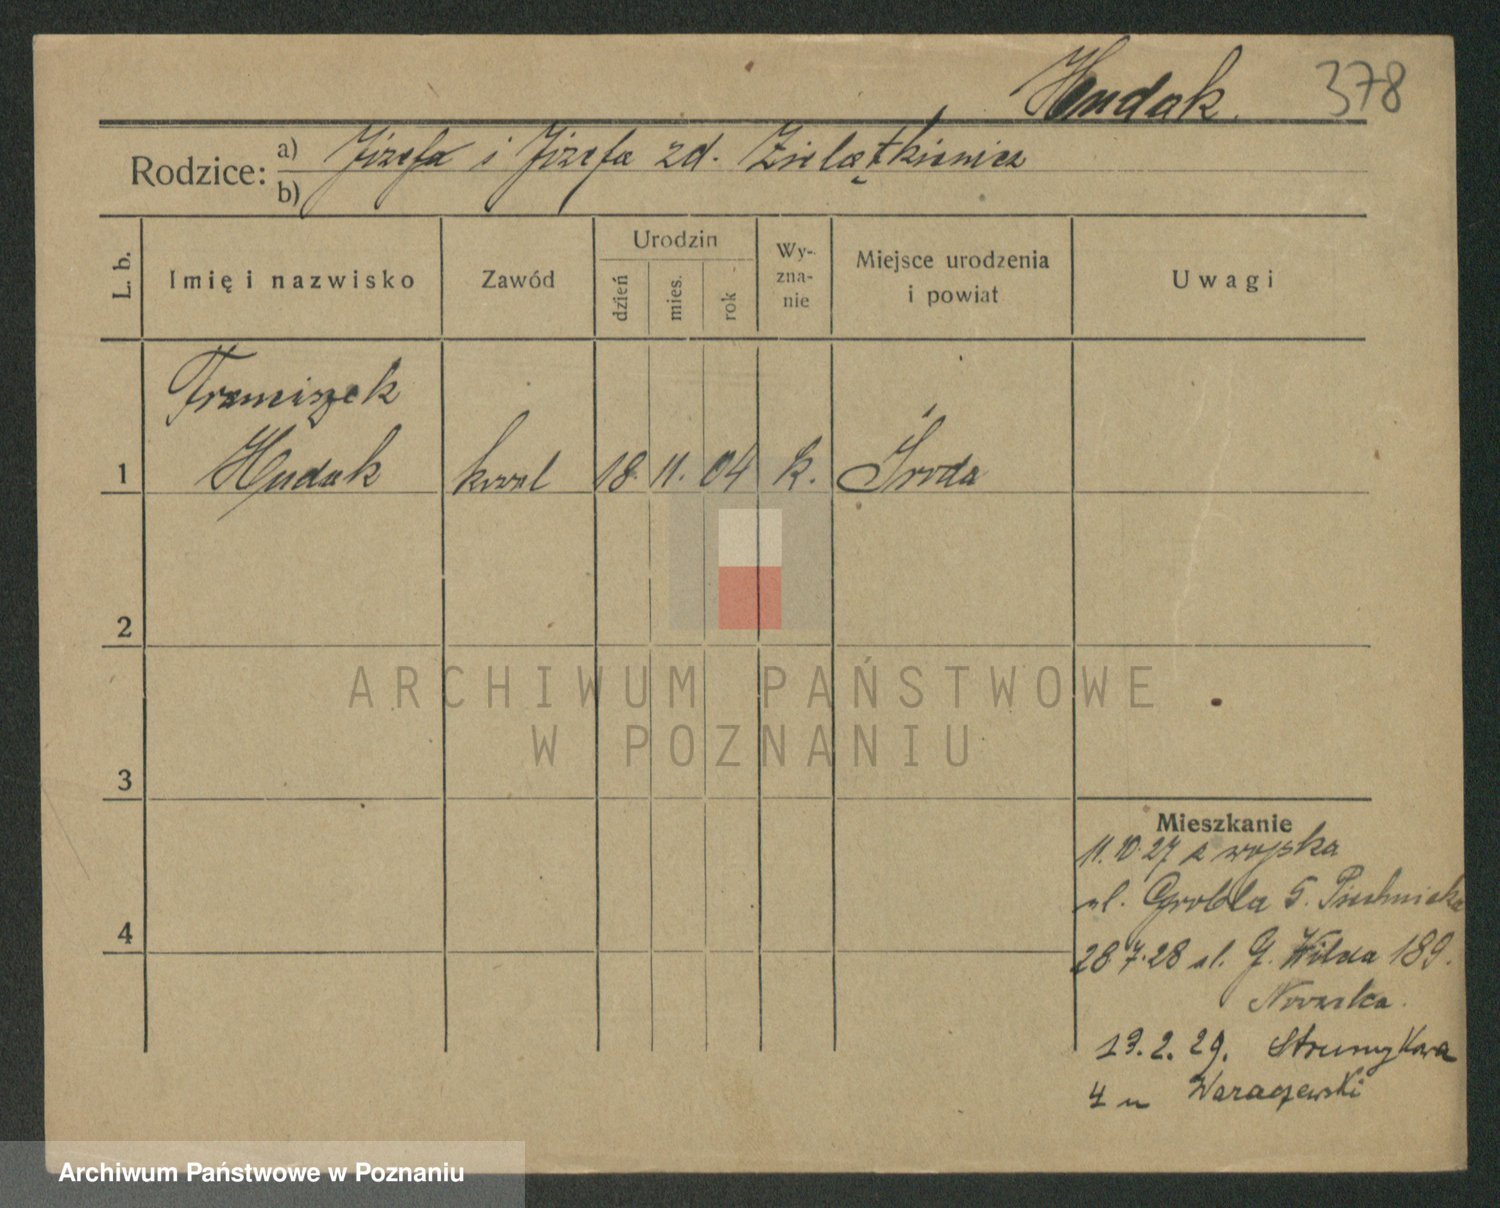 Hudak 378
Rodzice: a) Józefa i Józefa zd. Zielątkiewicz
b)
L. b. Imię i nazwisko Zawód Urodzin dzień mies. rok Wy-zna-nie Miejsce urodzenia i powiat Uwagi
Franciszek
1 Hudak kowal 18. 11. 04 k. Środa
2
ARCHIWUM PAŃSTWOWE
W POZNANIU
3
Mieszkanie
11.10.27 z wojska
ul. Grobla 5.
4
28.7.28 ul. G. Wilda 189.
13.2.29. Strumykowa
4 u
Archiwum Państwowe w Poznaniu